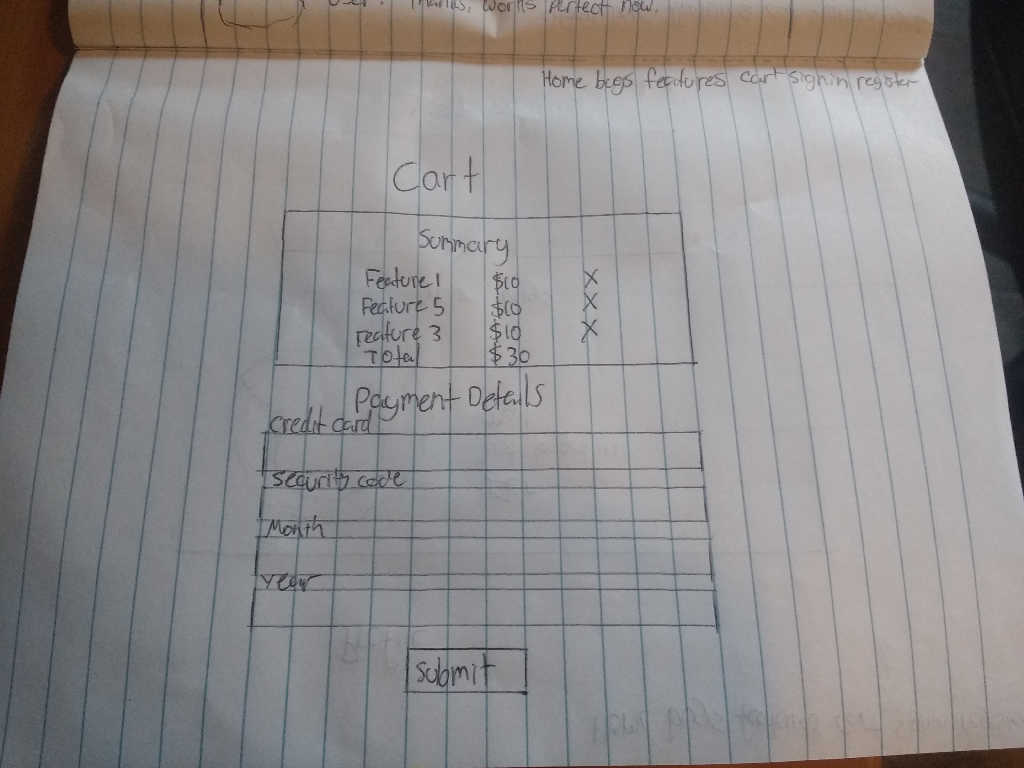 User: Thanks, works perfect now.
Home bugs features cart signin register
Cart
Summary
Feature 1 $10 X
Feature 5 $10 X
Feature 3 $10 X
Total $30
Payment Details
credit card
security code
Month
Year
Submit